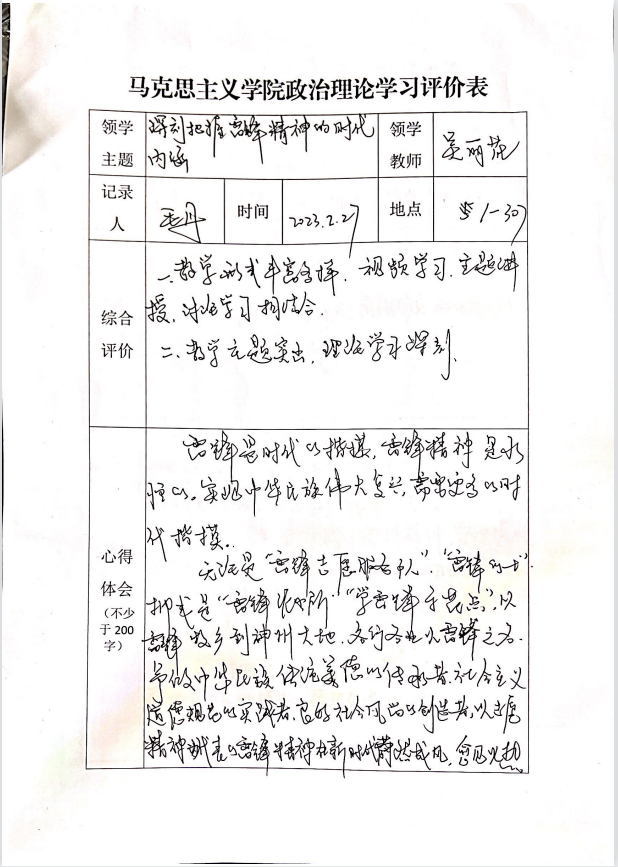 马克思主义学院政治理论学习评价表
领学主题
深刻把握雷锋精神的时代
内涵
领学教师
吴丽花
记录人
王丹
时间
2023.2.27
地点
1-307
综合评价
一、教学形式丰富多样,视频学习、主题讲
授、讨论学习相结合.
二、教学主题突出,理论学习深刻.
心得体会(不少于200字)
雷锋是时代的楷模,雷锋精神是永
恒的。实现中华民族伟大复兴,需要更多的时
代楷模.
无论是“雷锋志愿服务队”、“雷锋
抑或是“雷锋 “学雷锋示范点”,从
雷锋故乡到神州大地,各行各业以雷锋之名.
争做中华民族传统美德的传承者,社会主义
道德规范的实践者,良好社会风尚的创造者,以志愿
精神 的雷锋精神在新时代蔚然成风,